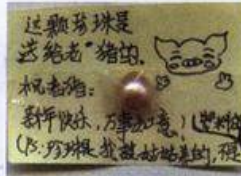 这颗珍珠是
送给老“猪的.
祝老猪:
新年快乐,万事如意!(
(PS:珍珠是我姑姑的,